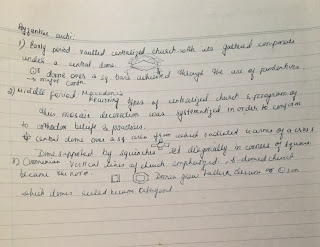 Byzantine archi:
1) Early period vaulted centralized church with its gathered components
under a central dome.
dome over a sq. base achieved through the use of pendentives.
→ major contri.
2) Middle period: Macedonia
Recurring types of centralized church & program of
their mosaic decoration was systematized in order to conform
to orthodox beliefs & practices.
central dome over a sq area from which radiated 4 arms of a cross
Dome supported by squinches set diagonally in corners of square
3) vertical lines of church emphasized. 5 domed church
became the norm. Domes grew taller. Drum or
which domes rested became Octagonal.